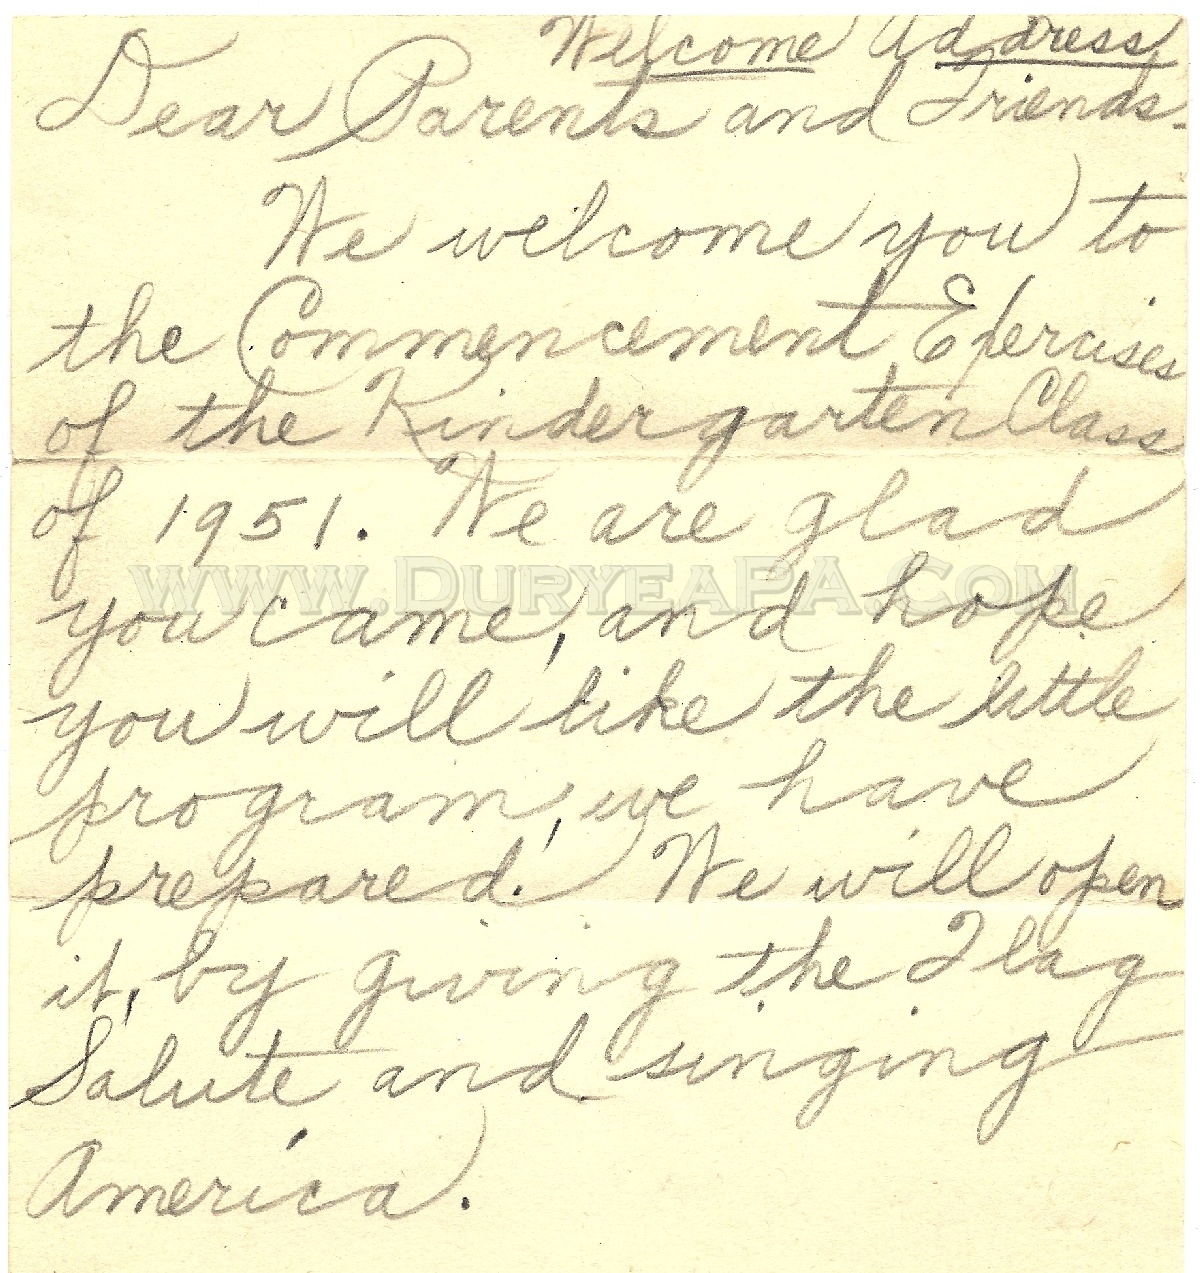 Welcome Address
Dear Parents and Friends-
We welcome you to
the Commencement Exercises
of the Kindergarten Class
of 1951. We are glad
www.DuryeaPA.Com
you came, and hope
you will like the little
program, we have
prepared. We will open
it, by giving the Flag
Salute and singing
America.